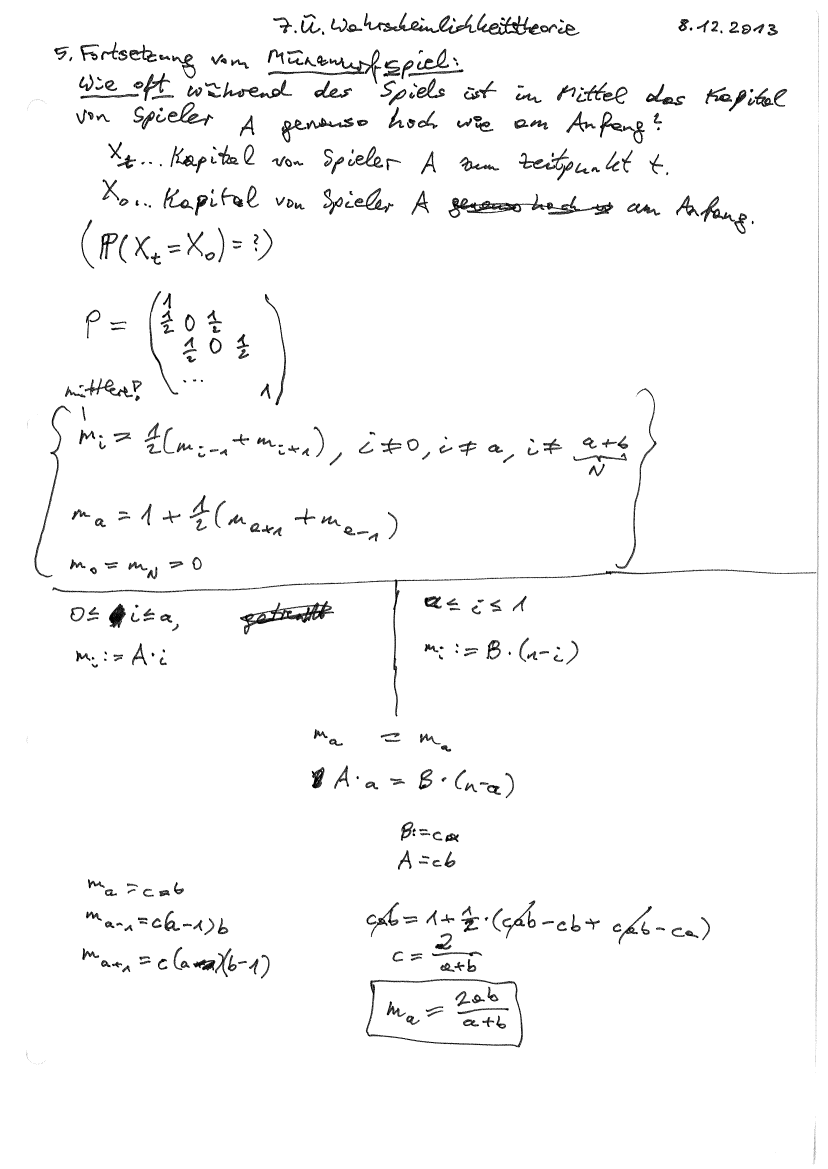 7. Ü. Wahrscheinlichkeitstheorie 8.12.2013
5. Fortsetzung vom Münzwurfspiel:
Wie oft während des Spiels ist im Mittel das Kapital
von Spieler A genauso hoch wie am Anfang?
X_t... Kapital von Spieler A zum Zeitpunkt t.
X_0... Kapital von Spieler A genauso hoch am Anfang.
(ℙ(X_t = X_0) = ?)
P = ( 1
1/2 0 1/2
1/2 0 1/2
... 1 )
mittlere?
m_i = 1/2(m_{i-1} + m_{i+1}), i ≠ 0, i ≠ a, i ≠ a+b
N
m_a = 1 + 1/2(m_{a+1} + m_{a-1})
m_0 = m_N = 0
0 ≤ i ≤ a, a ≤ i ≤ 1
m_i := A·i m_i := B·(n-i)
m_a = m_a
A·a = B·(n-a)
B := ca
A = cb
m_a = cab
m_{a-1} = c(a-1)b cab = 1 + 1/2·(cab - cb + cab - ca)
m_{a+1} = c(a)(b-1) c = 2/(a+b)
m_a = 2ab/(a+b)